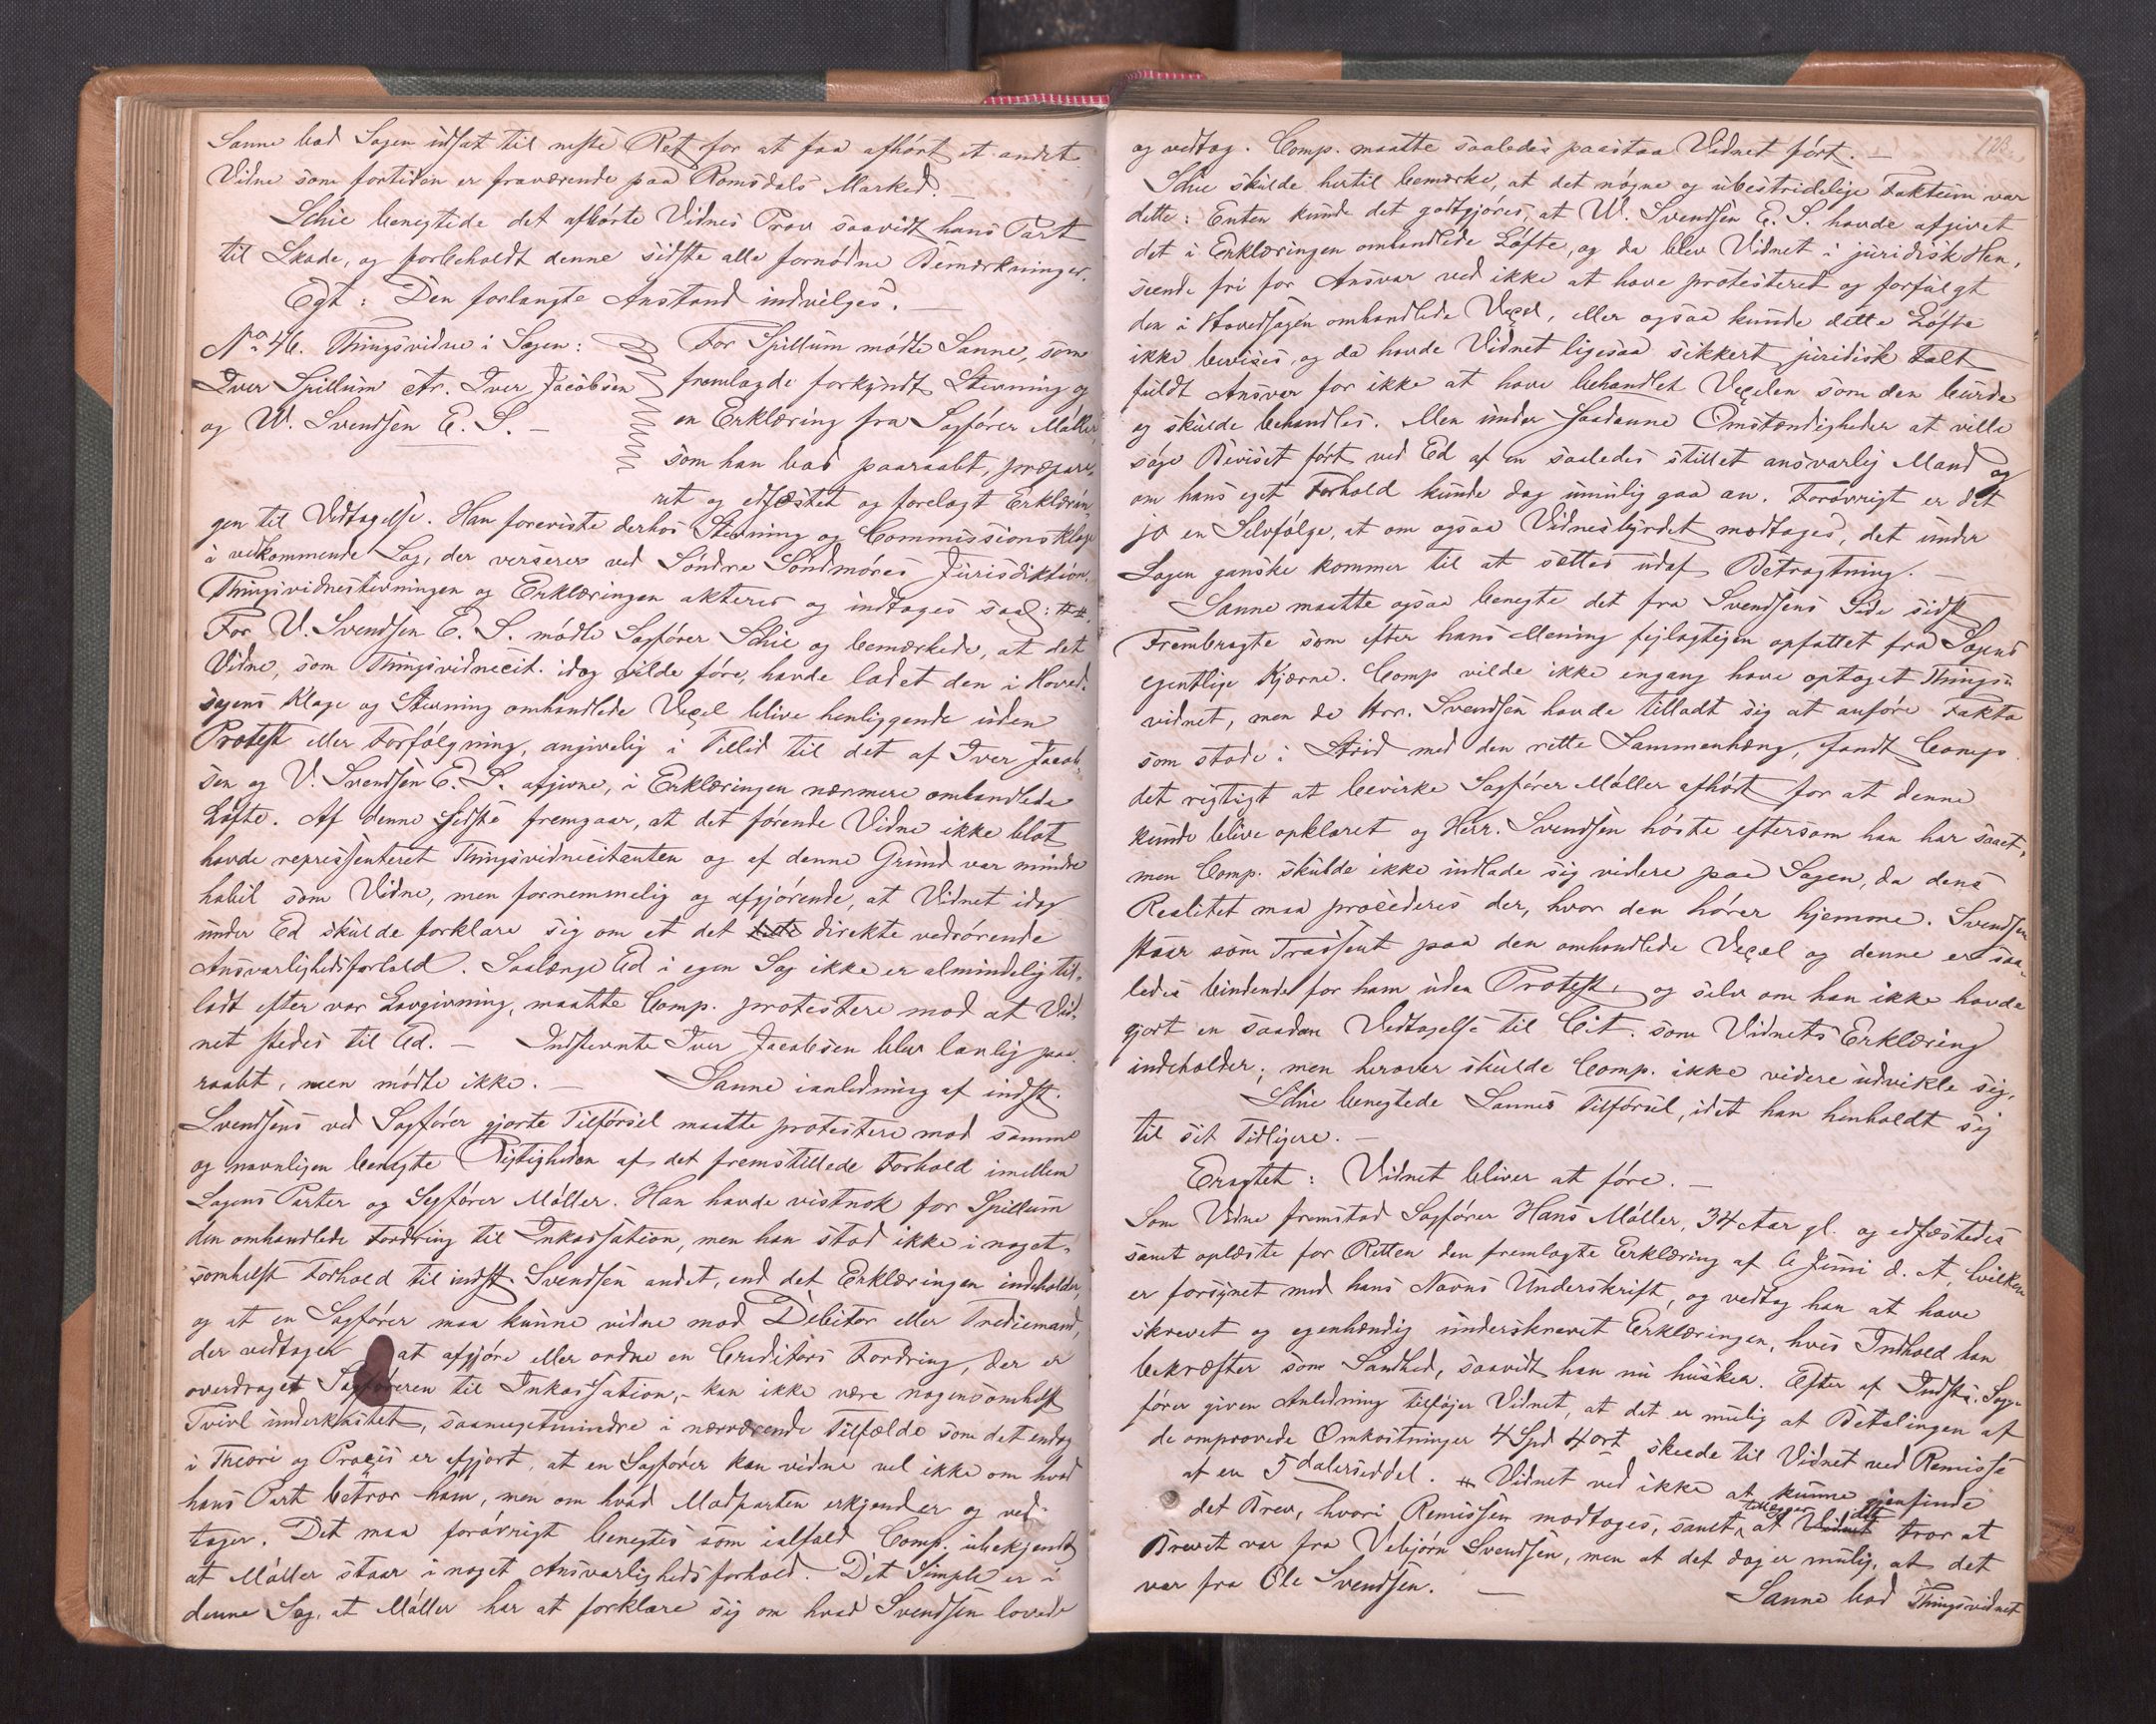 Sanne bad Sagen udsat til neste Ret for at faa afhørt et andet
Vidne som fortiden er fraværende paa Romsdals Marked.
Schie benegtede det afhørte Vidnes Prov saavidt hans Part
til Skade, og forbeholdt denne sidste alle fornødne Bemærkninger.
Egt: Den forlangte Anstand indvilges. —
No 46. Thingsvidne i Sagen:
Iver Spillum ctr. Iver Jacobsen
og W. Svendsen E. S. —
For Spillum mødte Sanne, som
fremlagde forkyndt Stevning og
en Erklæring fra Sagfører Møller,
som han bad paaraabt, præpare-
ret og edfæstet og forelagt Erklærin-
gen til Vedtagelse. Han foreviste derhos Stevning og Commissionsklage
i vedkommende Sag, der verserer ved Søndre Søndmøres Jurisdiktion.
Thingsvidnestevningen og Erklæringen akteres og indtages saal:
For V. Svendsen E. S. mødte Sagfører Schie og bemærkede, at det
Vidne, som Thingsvidnecit. idag vilde føre, havde ladet den i Hoved-
sagens Klage og Stevning omhandlede Vexel blive henliggende uden
Protest eller Forfølgning, angivelig i Tillid til det af Iver Jacob-
sen og V. Svendsen E. S. afgivne, i Erklæringen nærmere omhandlede
Løfte. Af denne Sidste fremgaar, at det førende Vidne ikke blot
havde repræssenteret Thingsvidnecitanten og af denne Grund var mindre
habil som Vidne, men fornemmelig og afgjørende, at Vidnet idag
under Ed skulde forklare sig om et det direkte vedrørende
Ansvarlighedsforhold. Saalænge Ed i egen Sag ikke er almindelig til-
ladt efter vor Lovgivning, maatte Comp. protestere mod at Vid-
net stedes til Ed. — Indstevnte Iver Jacobsen blev lovlig paa-
raabt, men mødte ikke. — Sanne ianledning af indst.
Svendsens ved Sagfører gjorte Tilførsel maatte protestere mod samme
og navnligen benegte Rigtigheden af det fremstillede Forhold imellem
Sagens Parter og Sagfører Møller. Han havde vistnok for Spillum
den omhandlede Fordring til Inkassation, men han stod ikke i noget-
somhelst Forhold til indst. Svendsen andet, end det Erklæringen indeholder,
og at en Sagfører maa kunne vidne mod Debitor eller Trediemand,
der vedtager at afgjøre eller ordne en Creditors Fordring, der er
overdraget Sagføreren til Inkassation, – kan ikke være nogensomhelst
Tvivl underkastet, saameget mindre i nærværende Tilfælde som det endog
i Theori og Praxis er afgjort, at en Sagfører kan vidne vel ikke om hvad
hans Part betror ham, men om hvad Modparten erkjender og ved-
tager. Det maa forøvrigt benegtes som ialfald Comp. ubekjendt
at Møller staar i noget Ansvarlighedsforhold. Det Simple er i
denne Sag, at Møller har at forklare sig om hvad Svendsen lovede
123.
og vedtog. Comp. maatte saaledes paastaa Vidnet ført. —
Schie skulde hertil bemærke, at det nøgne og ubestridelige Faktum var
dette: Enten kunde det godtgjøres, at W. Svendsen E. S. havde afgivet
det i Erklæringen omhandlede Løfte, og da blev Vidnet i juridisk Hen-
seende fri for Ansvar ved ikke at have protesteret og forfulgt
den i Hovedsagen omhandlede Vexel, eller ogsaa kunde dette Løfte
ikke bevises, og da havde Vidnet ligesaa sikkert juridisk talt
fuldt Ansvar for ikke at have behandlet Vexelen som den burde
og skulde behandles. Men under saadanne Omstændigheder at ville
søge Beviset ført ved Ed af en saaledes stillet ansvarlig Mand og
om hans eget Forhold kunde dog umulig gaa an. Forøvrigt er det
jo en Selvfølge, at om ogsaa Vidnesbyrdet modtages, det under
Sagen ganske kommer til at sættes udaf Betragtning. —
Sanne maatte ogsaa benegte det fra Svendsens Side sidst
Frembragte som efter hans Mening fejlagtigen opfattet fra Sagens
egentlige Kjærne. Comp vilde ikke engang have optaget Things-
vidnet, men da Hrr. Svendsen havde tilladt sig at anføre Fakta
som stode i Strid med den rette Sammenhæng, fandt Comp.
det rigtigt at bevirke Sagfører Møller afhørt for at denne
kunde blive opklaret og Herr. Svendsen høste eftersom han har saaet,
men Comp. skulde ikke indlade sig videre paa Sagen, da dens
Realitet maa procederes der, hvor den hører hjemme. Svendsen
staar som Trassent paa den omhandlede Vexel og denne er saa-
ledes bindende for ham uden Protest, og selv om han ikke havde
gjort en saadan Vedtagelse til Cit. som Vidnets Erklæring
indeholder; men herover skulde Comp. ikke videre udvikle sig.
Schie benegtede Sannes Tilførsel, idet han henholdt sig
til sit Tidligere. —
Eragtet: Vidnet bliver at føre. —
Som Vidne fremstod Sagfører Hans Møller, 34 Aar gl. og edfæstedes
samt oplæste for Retten den fremlagte Erklæring af 6 Juni d. A, hvilken
er forsynet med hans Navns Underskrift, og vedtog han at have
skrevet og egenhændig underskrevet Erklæringen, hvis Indhold han
bekræfter som Sandhed, saavidt han nu husker. Efter af Indsts. Sag-
fører given Anledning tilføjer Vidnet, at det er mulig at Betalingen af
de omprovede Omkostninger 4 Spd 4 ort skeede til Vidnet ved Remisse
af en 5 dalerseddel. Vidnet ved ikke at kunne gjenfinde
det Brev, hvori Remissen modtoges, samt tillægger at Vidnet det tror at
Brevet var fra Vebjørn Svendsen, men at det dog er mulig, at det
var fra Ole Svendsen. —
Sanne bad Thingsvidnet